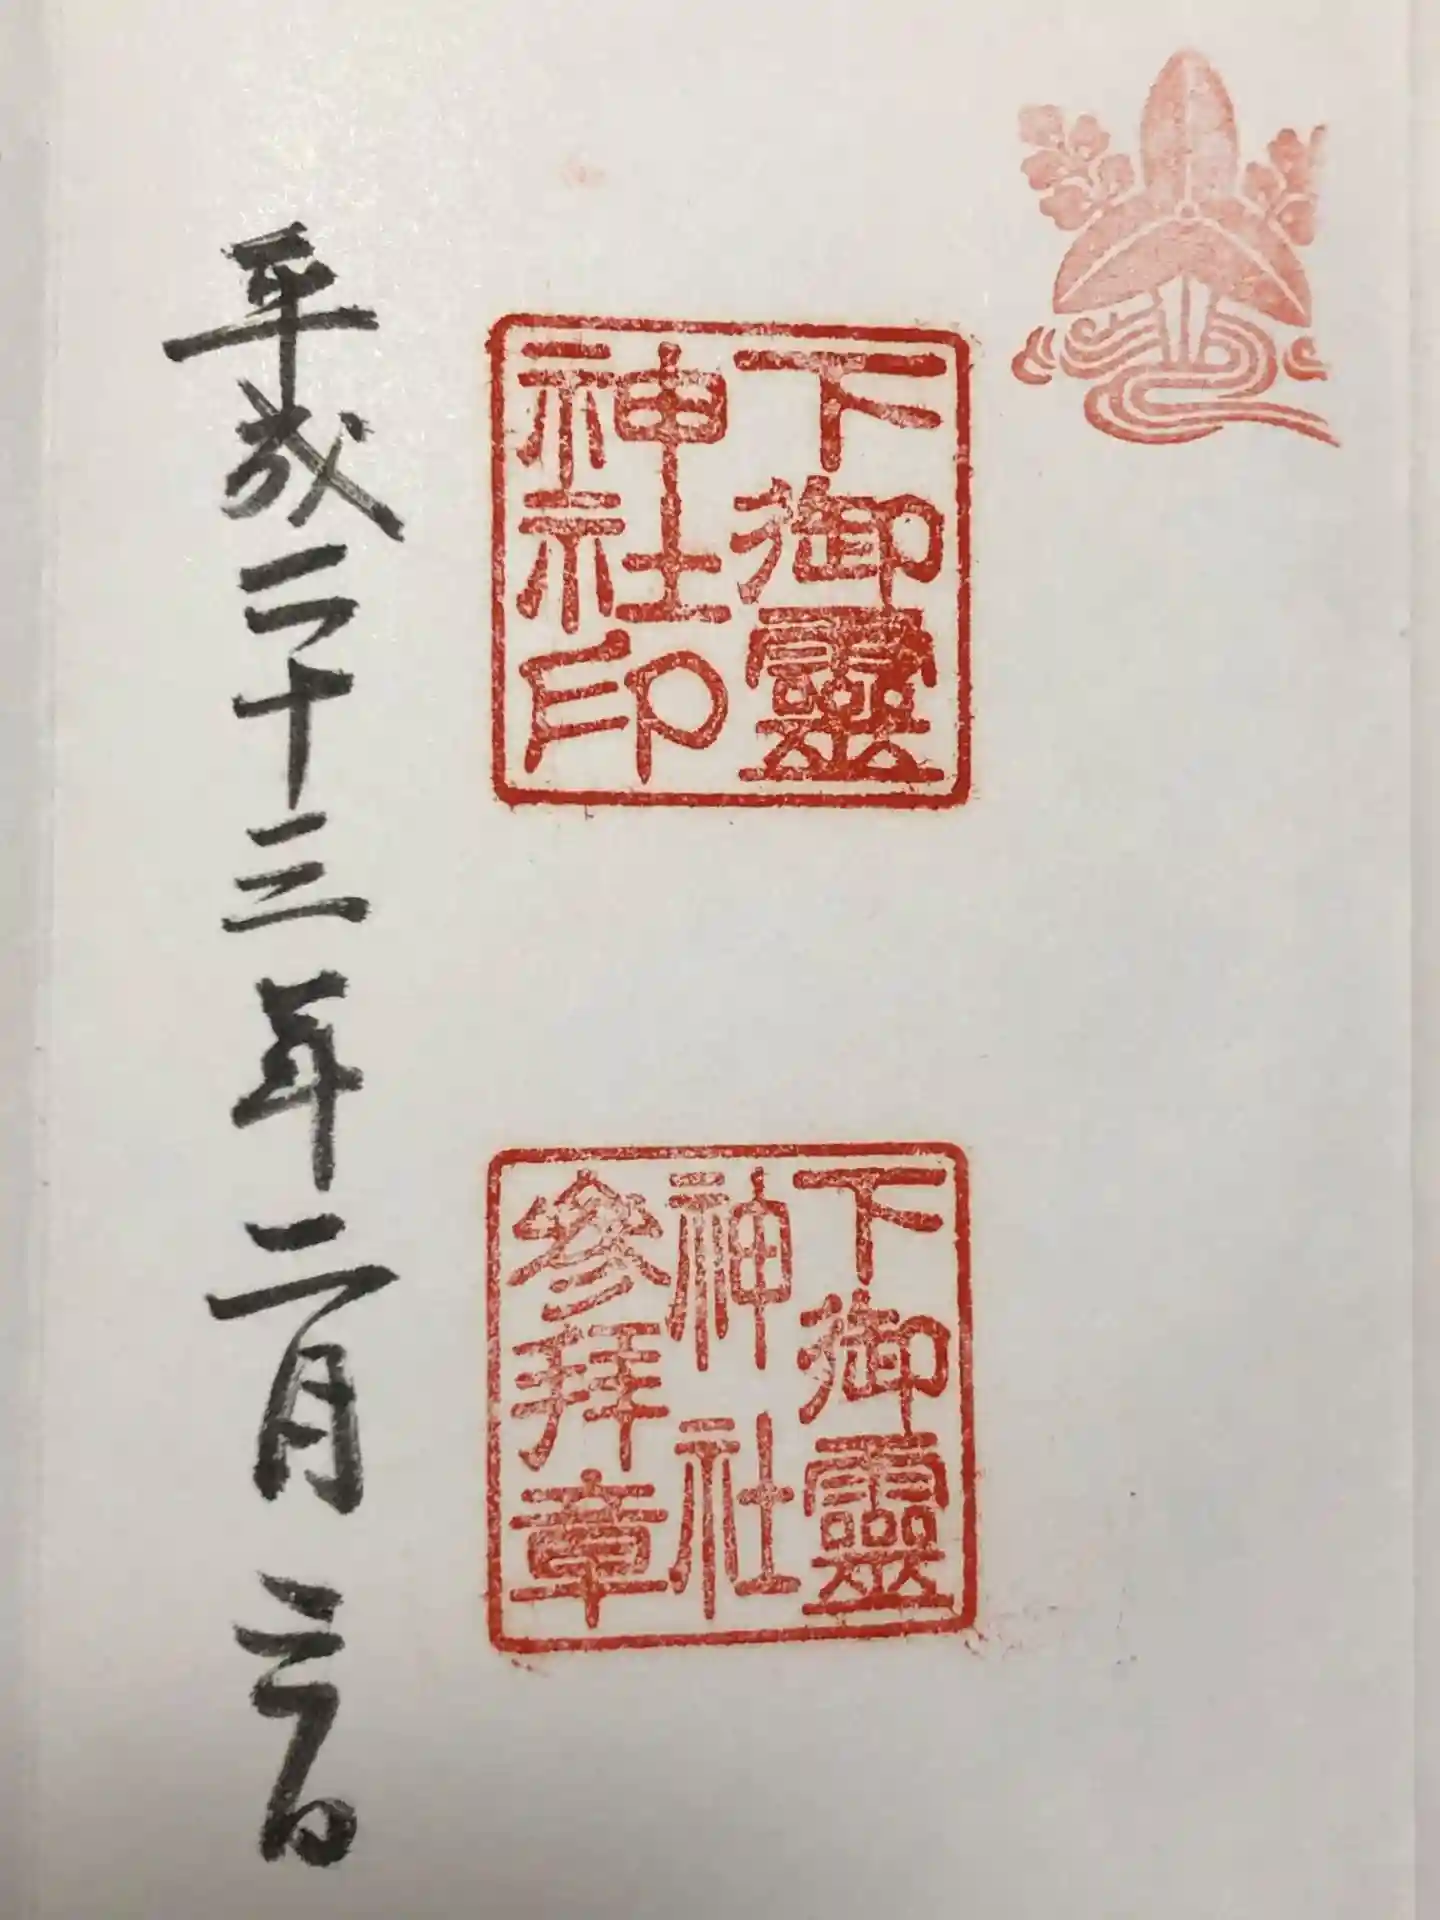 下御靈
神社印
下御靈
神社
參拜章
平成二十三年二月三日